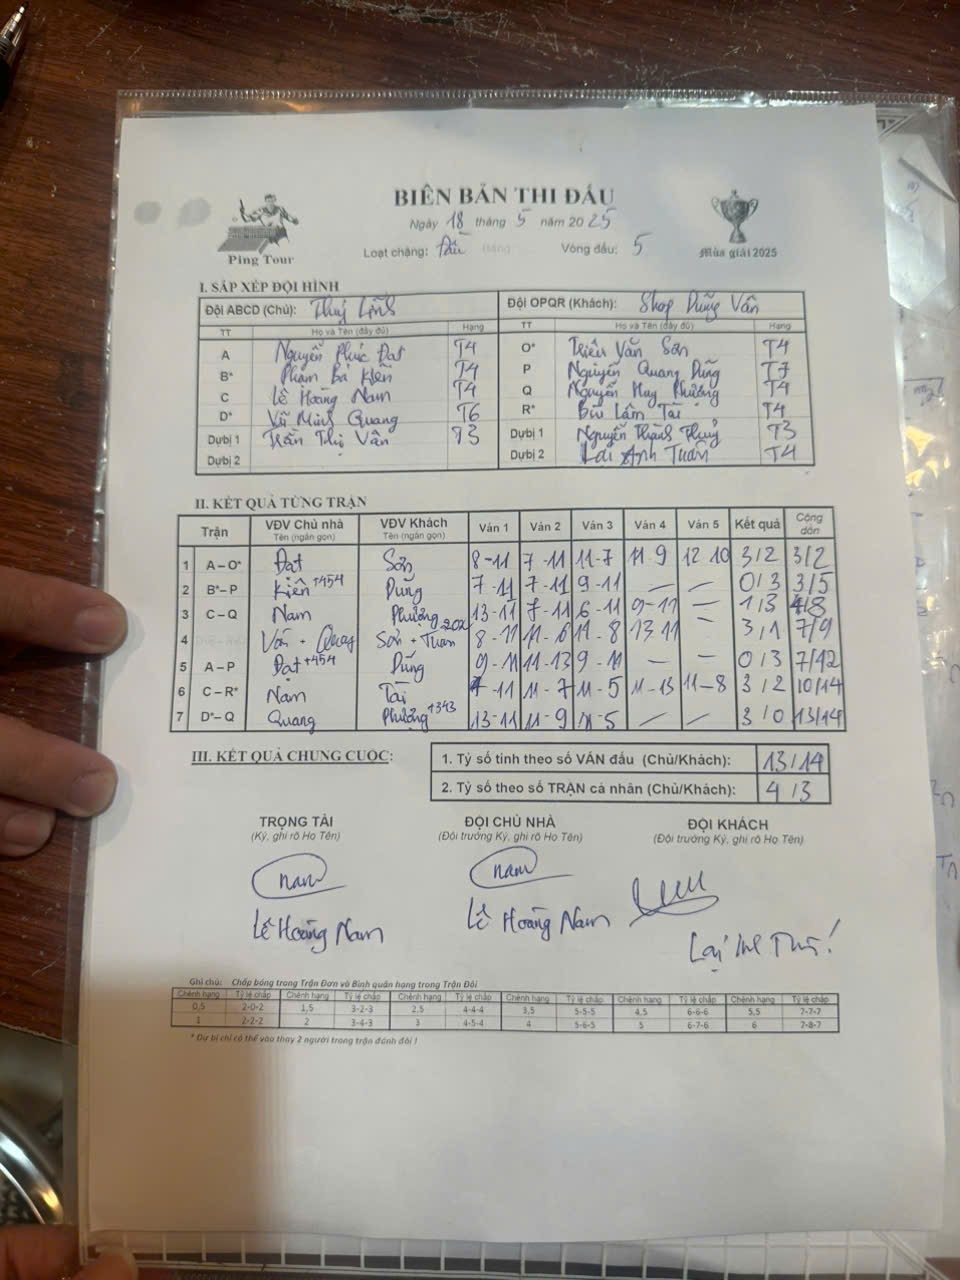 BIÊN BẢN THI ĐẤU
Ngày 18 tháng 5 năm 2025
Loạt chặng: Đấu Vòng đấu: 5
Ping Tour
Mùa giải 2025
I. SẮP XẾP ĐỘI HÌNH
Đội ABCD (Chủ): Thuỳ Linh Đội OPQR (Khách): Shop Dũng Vân
TT Họ và Tên (đầy đủ) Hạng TT Họ và Tên (đầy đủ) Hạng
A Nguyễn Phúc Đạt T4 O* Triệu Văn Sơn T4
B* Phạm Bá Kiên T4 P Nguyễn Quang Dũng T7
C Lê Hoàng Nam T4 Q Nguyễn Huy Phượng T4
D* Vũ Minh Quang T6 R* Bùi Lâm Tài T4
Dự bị 1 Trần Thị Vân T3 Dự bị 1 Nguyễn Thanh Thuỷ T3
Dự bị 2 Dự bị 2 Lại Anh Tuấn T4
II. KẾT QUẢ TỪNG TRẬN
Trận VĐV Chủ nhà Tên (ngắn gọn) VĐV Khách Tên (ngắn gọn) Ván 1 Ván 2 Ván 3 Ván 4 Ván 5 Kết quả Cộng dồn
1 A – O* Đạt Sơn 8-11 7-11 11-7 11-9 12 10 3/2 3/2
2 B* – P Kiên +454 Dũng 7-11 7-11 9-11 — — 0/3 3/5
3 C – Q Nam Phượng 13-11 7-11 6-11 9-11 — 1/3 4/8
4 Vân + Quang Sơn + Tuấn 8-11 11-6 11-8 13 11 - 3/1 7/9
5 A – P Đạt +454 Dũng 9-11 11-13 9-11 — — 0/3 7/12
6 C – R* Nam Tài 7-11 11-7 11-5 11-13 11-8 3/2 10/14
7 D* – Q Quang Phượng +343 13-11 11-9 11-5 — — 3/0 13/14
III. KẾT QUẢ CHUNG CUỘC:
1. Tỷ số tính theo số VÁN đấu (Chủ/Khách): 13/14
2. Tỷ số theo số TRẬN cá nhân (Chủ/Khách): 4/3
TRỌNG TÀI ĐỘI CHỦ NHÀ ĐỘI KHÁCH
(Ký, ghi rõ Họ Tên) (Đội trưởng Ký, ghi rõ Họ Tên) (Đội trưởng Ký, ghi rõ Họ Tên)
nam nam
Lê Hoàng Nam Lê Hoàng Nam
Ghi chú: Chấp bóng trong Trận Đơn và Bình quân hạng trong Trận Đôi
Chênh hạng Tỷ lệ chấp Chênh hạng Tỷ lệ chấp Chênh hạng Tỷ lệ chấp Chênh hạng Tỷ lệ chấp Chênh hạng Tỷ lệ chấp Chênh hạng Tỷ lệ chấp
0,5 2-0-2 1,5 3-2-3 2,5 4-4-4 3,5 5-5-5 4,5 6-6-6 5,5 7-7-7
1 2-2-2 2 3-4-3 3 4-5-4 4 5-6-5 5 6-7-6 6 7-8-7
* Dự bị chỉ có thể vào thay 2 người trong trận đánh đôi !